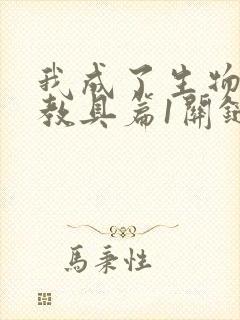 我成了生物
教具篇1關鍵
馬秉性